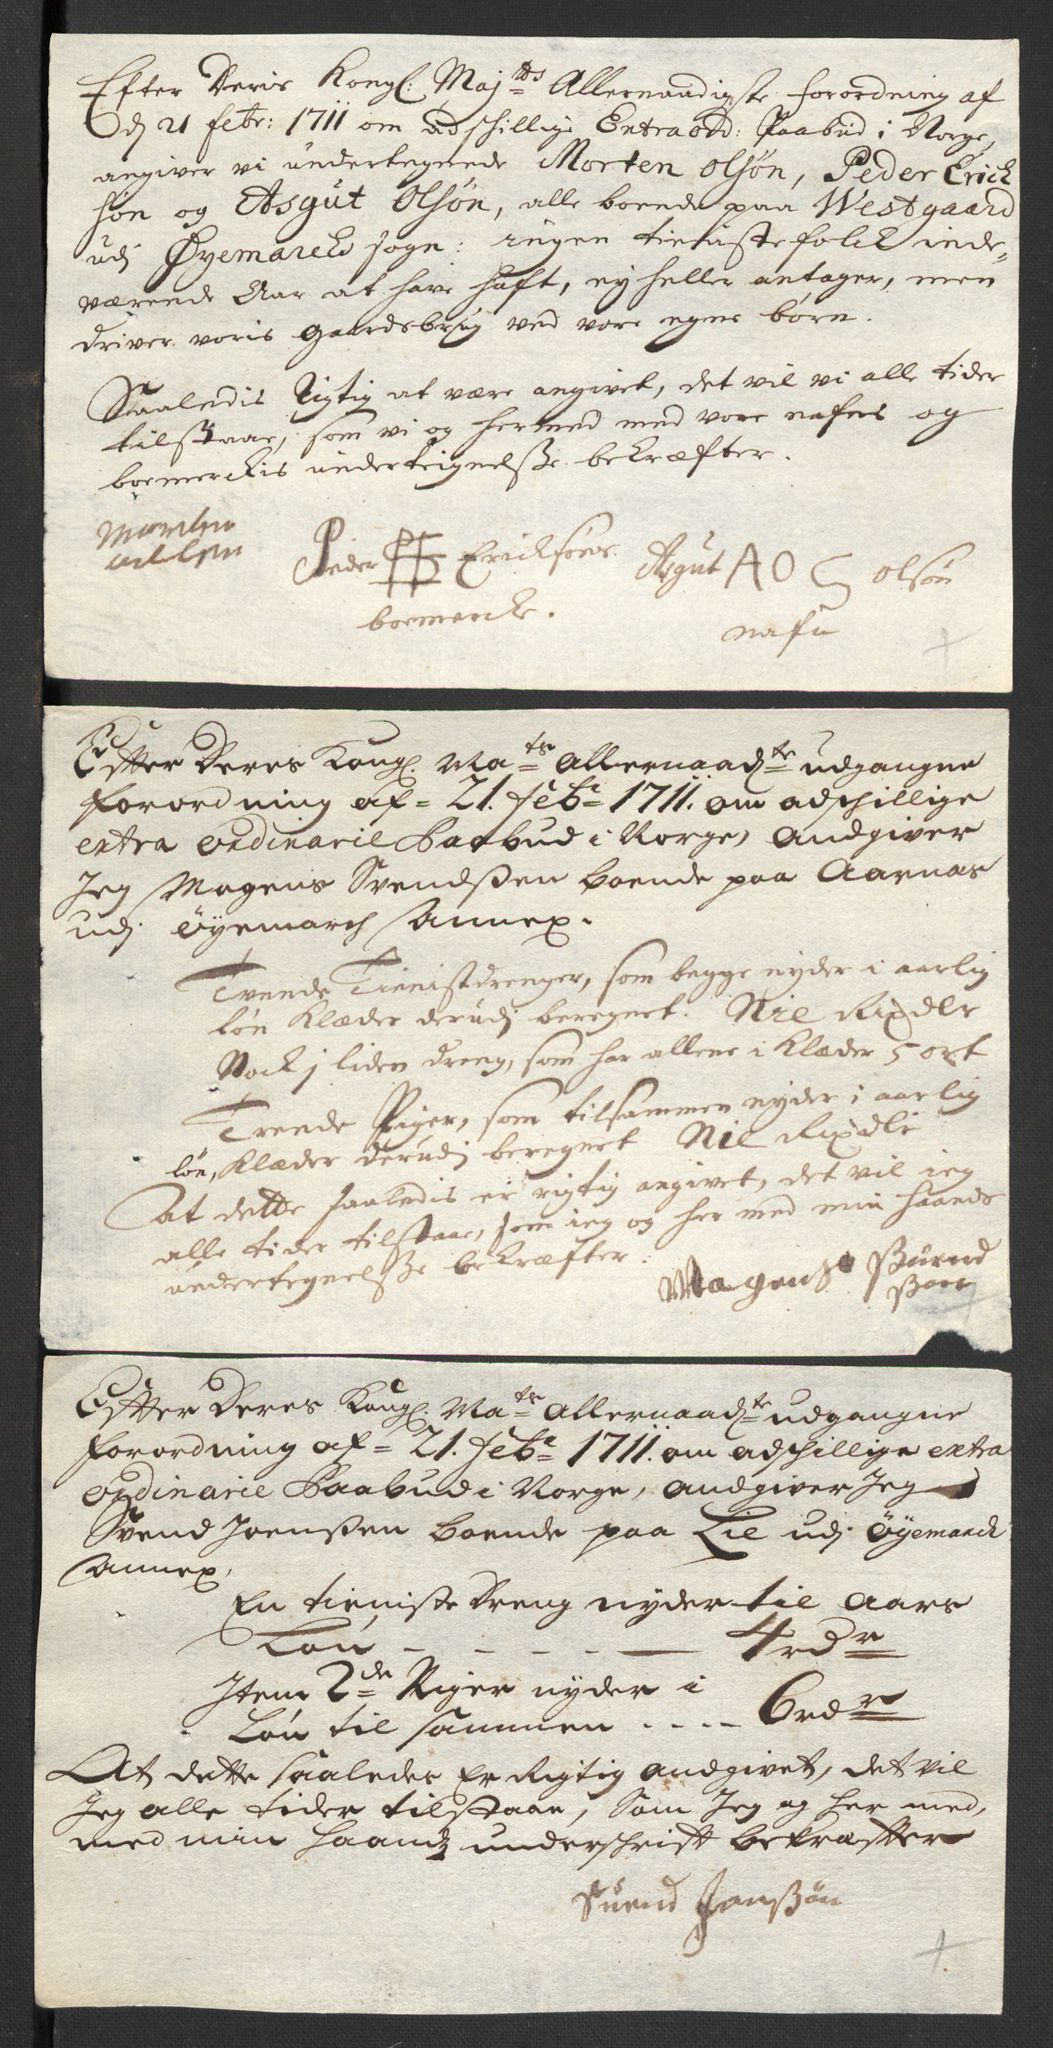 Efter Deris Kongl: Maj^tts Allernaadigste forordning af
d 21 febr: 1711 om adschillige Extraord: Paabud i Norge,
angiver vi undertegnede Morten Olsøn, Peder Erich
søn og Asgut Olsøn, alle boende paa Westgaard
udj Øyemarck sogn: ingen tieniste folck inde,,
værende Aar at have haft, ej heller antager, men
driver voris gaardsbrug ved vore egne børn.
Saaledis rigtig at være angivet, det vil vi alle tider
tilstaae, som vi og hermed med vore nafns og
boemerckis undertegnelsse bekræfter.
Morten
ollsen
Peder Ericksøns
boemercke.
Asgut AO S Olsøn
nafn
Effter Deres Kongl. Ma^ts Allernaad^te udgangne
forordning af 21. Feb^r 1711. om adschillige
extra ordinarie Paabud i Norge, andgiver
Jeg Mogens Svendssen boende paa Aarnæs
udj Øyemarch Annex.
Tvende Tienistdrenger, som begge nyder i aarlig
løn Klæder derudj beregnet. Nie Rixdlr
Nock j liden dreng, som har allene i Klæder 5 ort
Trende Piger, som tilsammen nyder i aarlig
løn, Klæder derudj beregnet Nie Rixdlr
At dette saaledis er rigtig angivet, det vil ieg
alle tider tilstaae, som ieg og her med min haands
undertegnelsse bekræfter:
Magens Suend
ssøn
Effter Deres Kongl. Ma^ts Allernaad^te udgangne
forordning af 21. Feb^r 1711. om adschillige extra
ordinarie Paabud i Norge, andgiver Jeg
Svend Joenssen boende paa Lie udj Øyemarck
Annex.
En tieniste Dreng nyder til Aars
Løn - - - - 4 rd^r
Item 2^de Piger nyder i
Løn til sammen . . . . 6 rd^r
At dette saaledes Er Rigtig andgivet, det vil
Jeg alle tider tilstaae, Som Jeg og her med,
med min haandz underschrift bekræffter
Suend Jonssøn